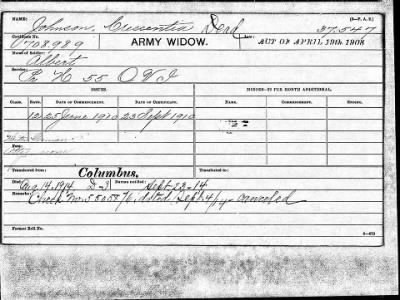 NAME: (3-F. A. U.)
Johnson, Dead 37.547
Certificate No. ARMY WIDOW. ACT OF APRIL 19th 1908
0708,989
Name of Soldier:
Albert
Service:
55 O V I
ISSUES. MINORS—$2 PER MONTH ADDITIONAL.
CLASS. RATE. DATE OF COMMENCEMENT. DATE OF CERTIFICATE. NAME. COMMENCING. ENDING.
12 25 June 1910 23 Sept 1910
Fee:
Transferred from: Columbus. Transferred to:
Died: Aug 14, 1914 Bureau notified: Sept 22-14
Remarks: Check No. dated Sept 4/14 canceled
Former Roll No.